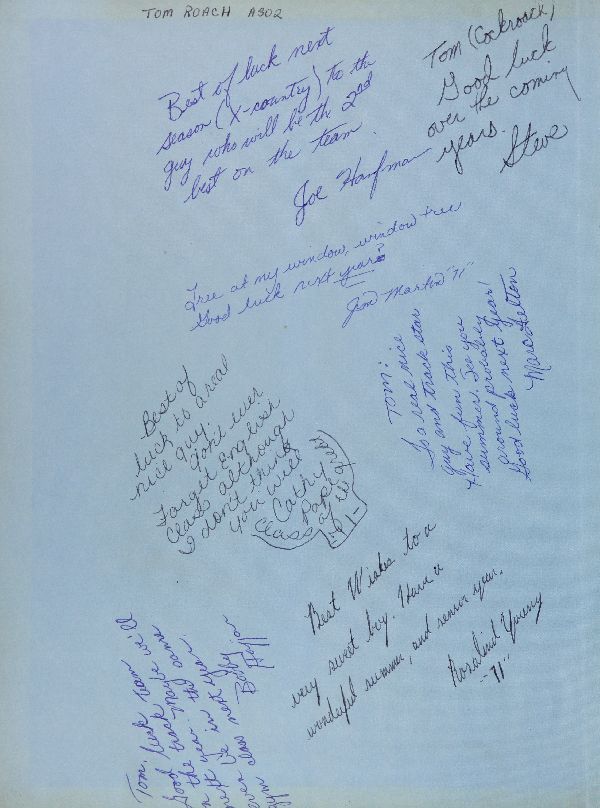 TOM ROACH A302
Best of luck next
season (X-country) to the
guy who will be the 2nd
best on the team.
Joe
Tom (Cockroach)
Good luck
over the coming
years.
Steve
Tree at my window, window tree
Good luck next year?
Jim Martin "71"
Tom:
To a real nice
guy and track star
Have fun this
summer. See you
around probably
Good luck next year!
Best of
luck to a real
nice guy.
Don't ever
forget English
class although
I don't think
you will
Cathy
Class of
Best Wishes to a
very sweet boy. Have a
wonderful summer, and senior year.
Rosalind Young
-"71"
Tom,
Good luck
track team
the year. Maybe
next year
in the
gym class
Bob